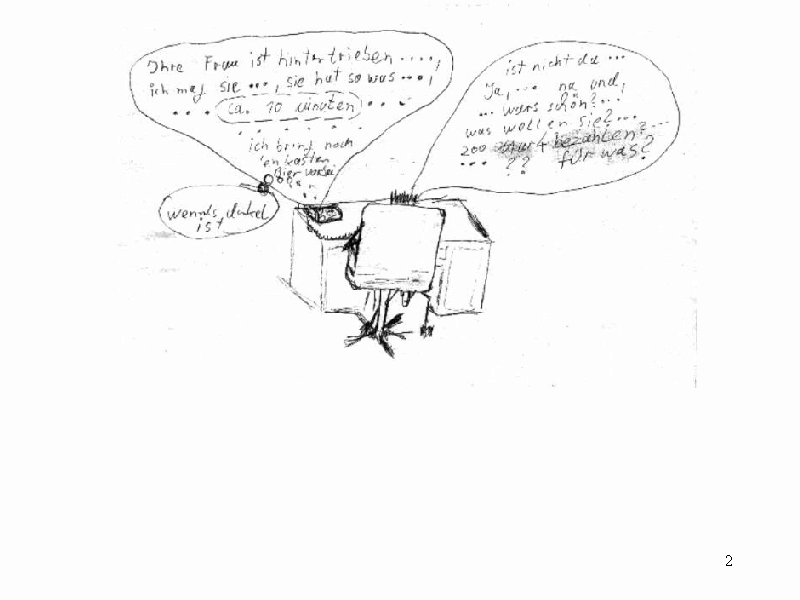 Ihre Frau ist hintertrieben ....,
ich mag sie ..., sie hat so was ...,
... ca. 10 Minuten ...
ich bring noch
'en Kasten
Bier vorbei
wenn's dunkel
ist
ist nicht da ...
Ja, ... na und,
... wars schön? ...
was wollen Sie? ...
200 bezahlen? ...
... ?? für was?
2